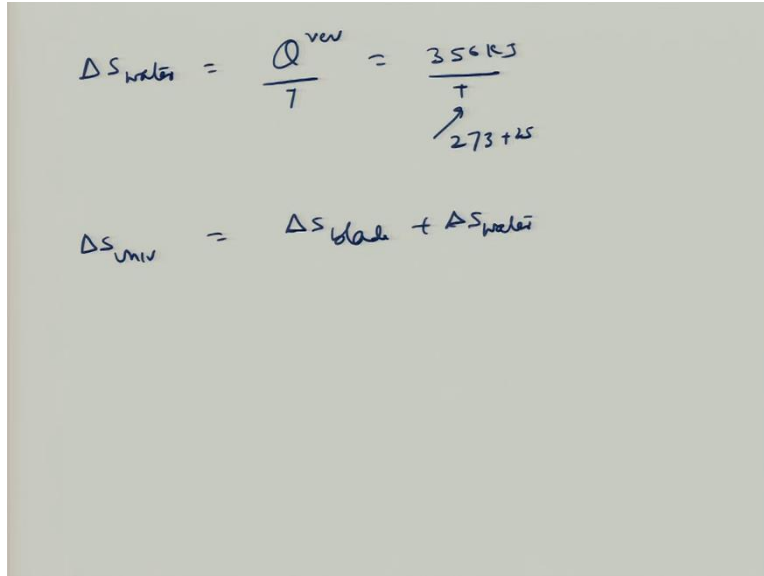 ΔS_water = Q^rev / T = 356 KJ / T
273 + 25
ΔS_univ = ΔS_blade + ΔS_water